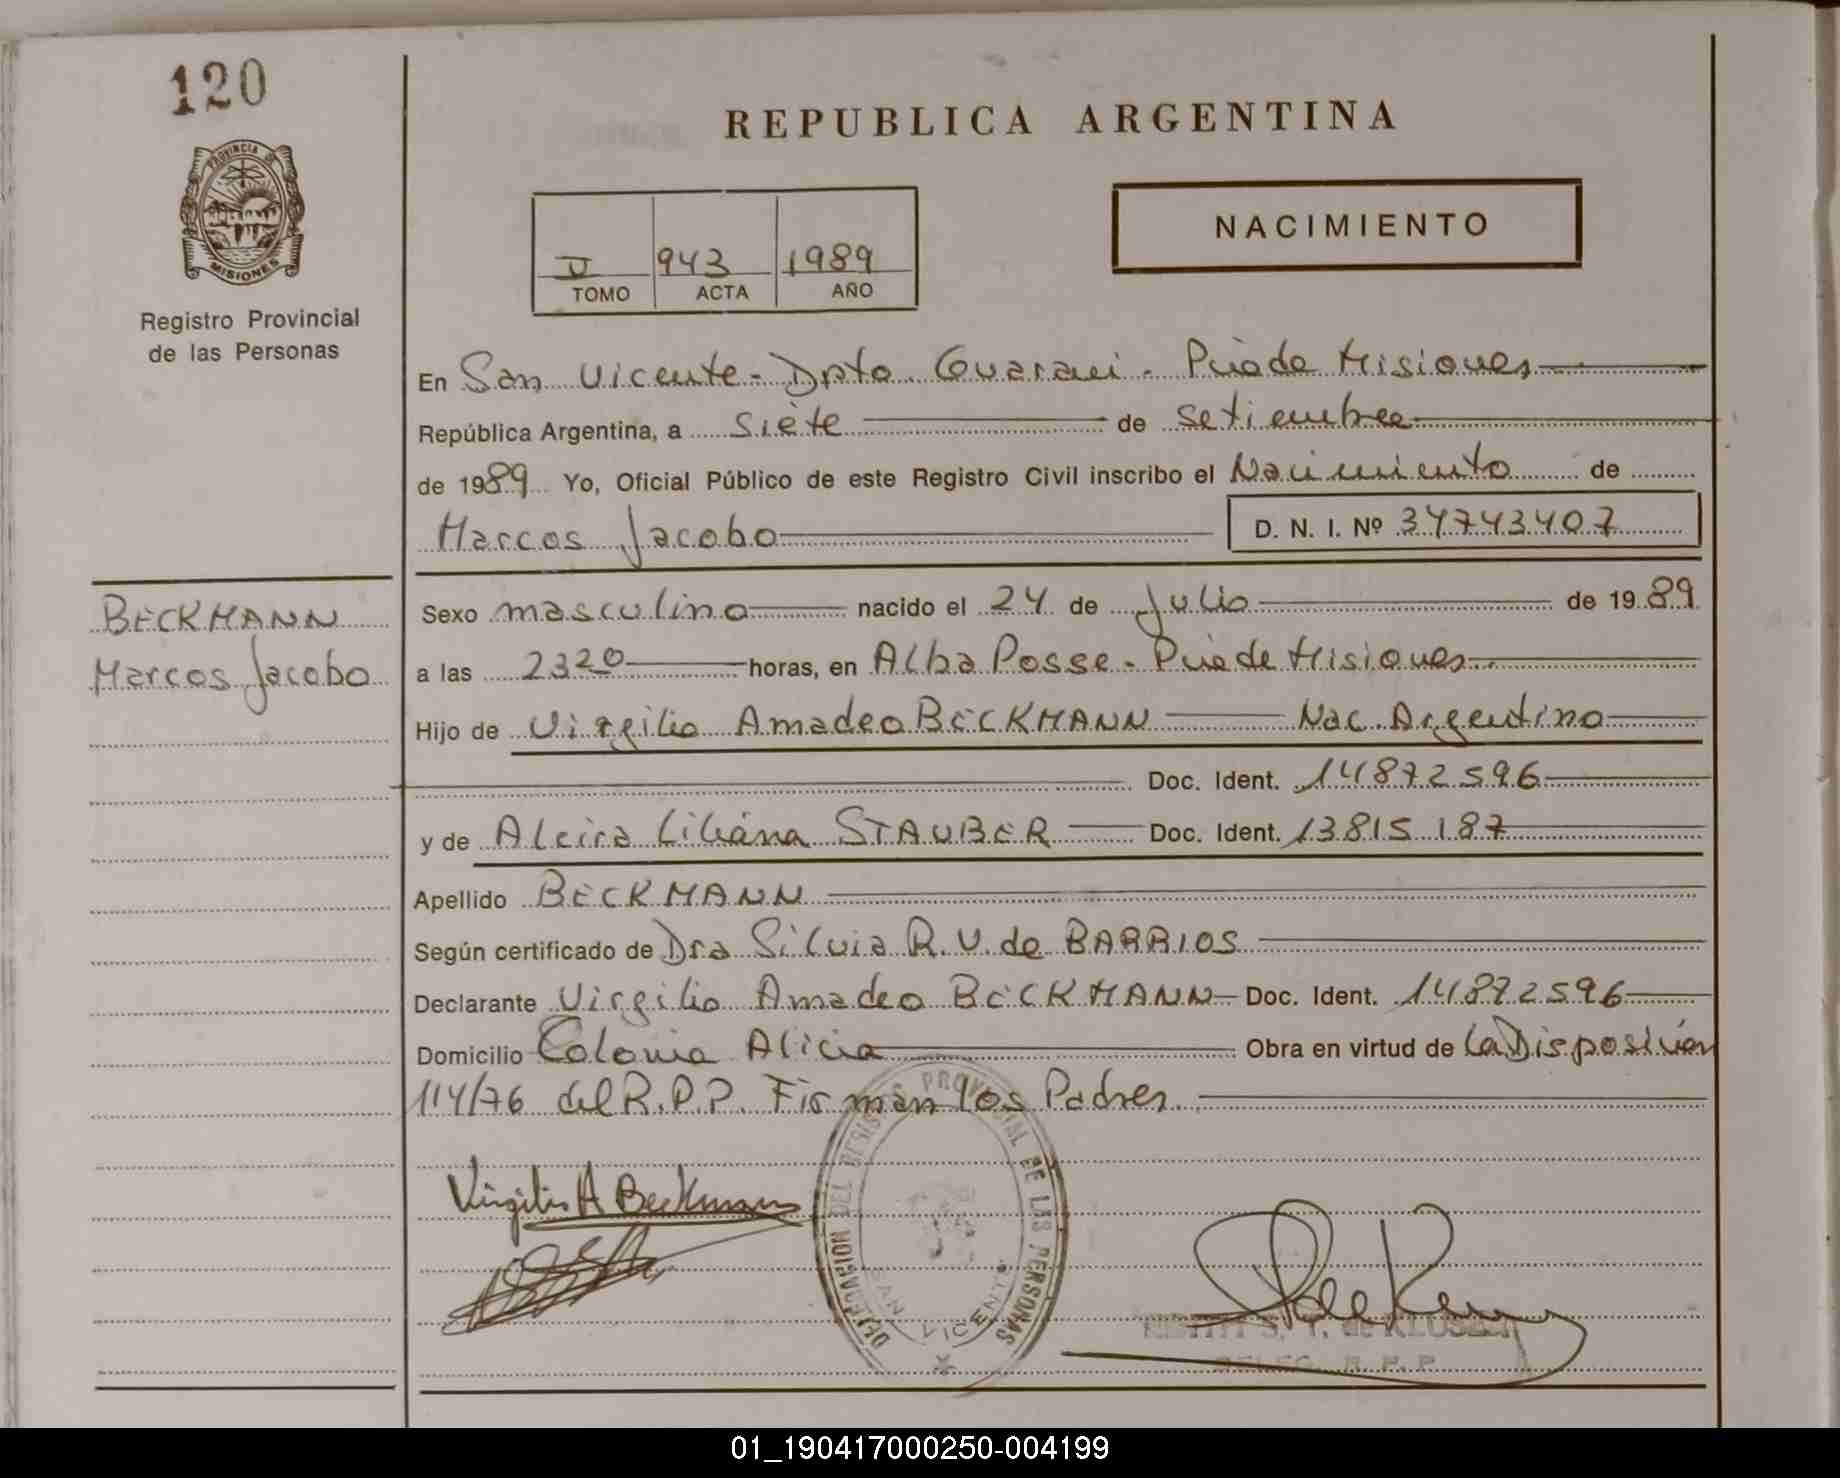 120
REPUBLICA ARGENTINA
PROVINCIA DE
MISIONES
NACIMIENTO
943 1989
TOMO ACTA AÑO
Registro Provincial
de las Personas
En San Vicente - Dpto. Guarani - Pcia de Misiones
República Argentina, a siete de setiembre
de 1989 Yo, Oficial Público de este Registro Civil inscribo el Nacimiento de
Marcos Jacobo D. N. I. Nº 34743407
BECKMANN
Marcos Jacobo
Sexo masculino nacido el 24 de Julio de 1989
a las 2320 horas, en Alba Posse - Pcia de Misiones
Hijo de Virgilio Amadeo BECKMANN Nac. Argentino
Doc. Ident. 14872596
y de Alcira Liliana STAUBER Doc. Ident. 13815187
Apellido BECKMANN
Según certificado de Dra Silvia R. V. de BARRIOS
Declarante Virgilio Amadeo BECKMANN Doc. Ident. 14872596
Domicilio Colonia Alicia Obra en virtud de La Disposición
114/76 del R.P.P. Firman los Padres.
Virgilio A Beckmann
DELEGACION DEL REGISTRO PROVINCIAL DE LAS PERSONAS
SAN VICENTE
DELEG. R. P. P.
01_190417000250-004199